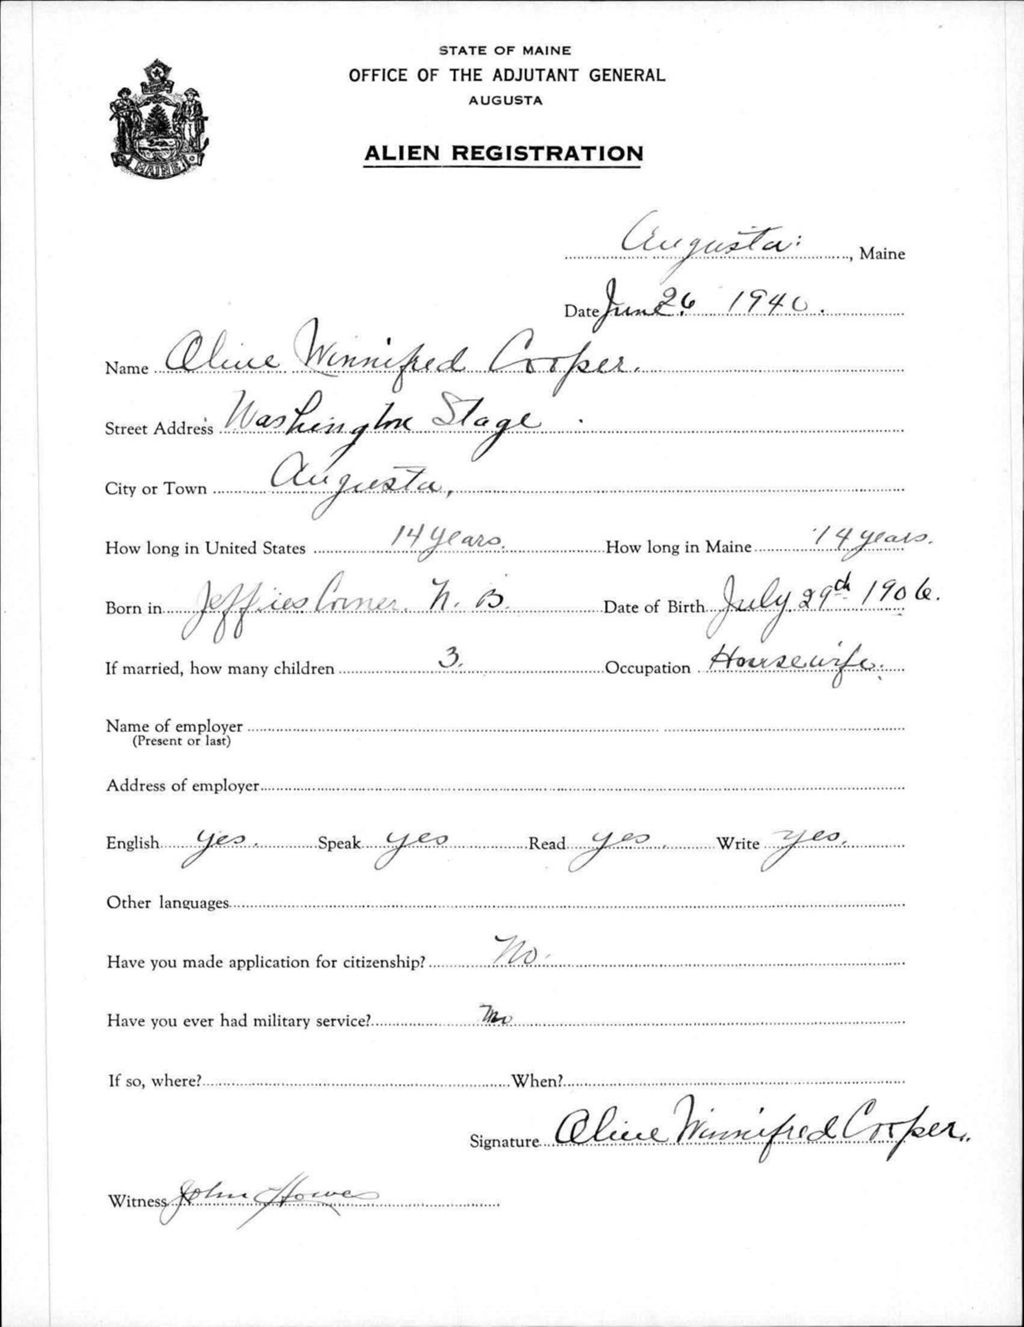 STATE OF MAINE
OFFICE OF THE ADJUTANT GENERAL
AUGUSTA
ALIEN REGISTRATION
MAINE
Augusta, Maine
Date June 26 1940.
Name Olive Winnifred Cooper.
Street Address Washington Stage
City or Town Augusta,
How long in United States 14 years. How long in Maine 14 years.
Born in Jeffries Corner. N. B. Date of Birth July 29th 1906.
If married, how many children 3. Occupation Housewife.
Name of employer
(Present or last)
Address of employer
English yes. Speak yes Read yes. Write yes.
Other languages
Have you made application for citizenship? No.
Have you ever had military service? No
If so, where? When?
Signature Olive Winnifred Cooper.
Witness John Howes